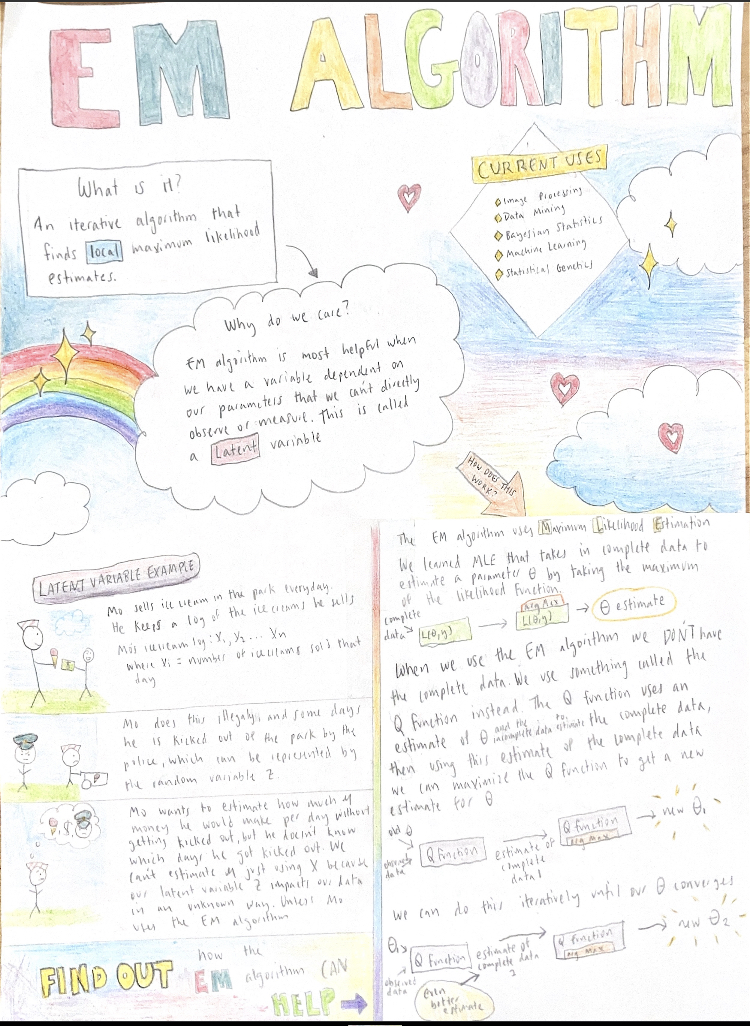 EM ALGORITHM
What is it?
An iterative algorithm that
finds local maximum likelihood
estimates.
CURRENT USES
Image Processing
Data Mining
Bayesian Statistics
Machine Learning
Statistical Genetics
Why do we care?
EM algorithm is most helpful when
we have a variable dependent on
our parameters that we can't directly
observe or measure. This is called
a Latent variable
HOW DOES THIS
WORK?
LATENT VARIABLE EXAMPLE
Mo sells ice cream in the park everyday.
He keeps a log of the ice creams he sells
Mo's ice cream log: X₁, X₂ ... Xn
where Xi = number of ice creams sold that
day
Mo does this illegally, and some days
he is kicked out of the park by the
police, which can be represented by
the random variable Z.
$
Mo wants to estimate how much
money he would make per day without
getting kicked out, but he doesn't know
which days he got kicked out. We
can't estimate just using X because
our latent variable Z impacts our data
in an unknown way. Unless Mo
uses the EM algorithm
FIND OUT how the
EM algorithm CAN
HELP
The EM algorithm uses Maximum Likelihood Estimation
We learned MLE that takes in complete data to
estimate a parameter θ by taking the maximum
of the likelihood function.
complete
data
L(θ;y)
Arg Max
L(θ;y)
θ estimate
When we use the EM algorithm we DON'T have
the complete data. We use something called the
Q function instead. The Q function uses an
estimate of θ and the incomplete data to estimate the complete data,
then using this estimate of the complete data
we can maximize the Q function to get a new
estimate for θ
old θ
observed
data
Q function
estimate of
complete
data 1
Q function
arg max
new θ₁
We can do this iteratively until our θ converges
θ₁
observed
data
Q function
estimate of
complete data
2
Q function
arg max
new θ₂
Even
better
estimate